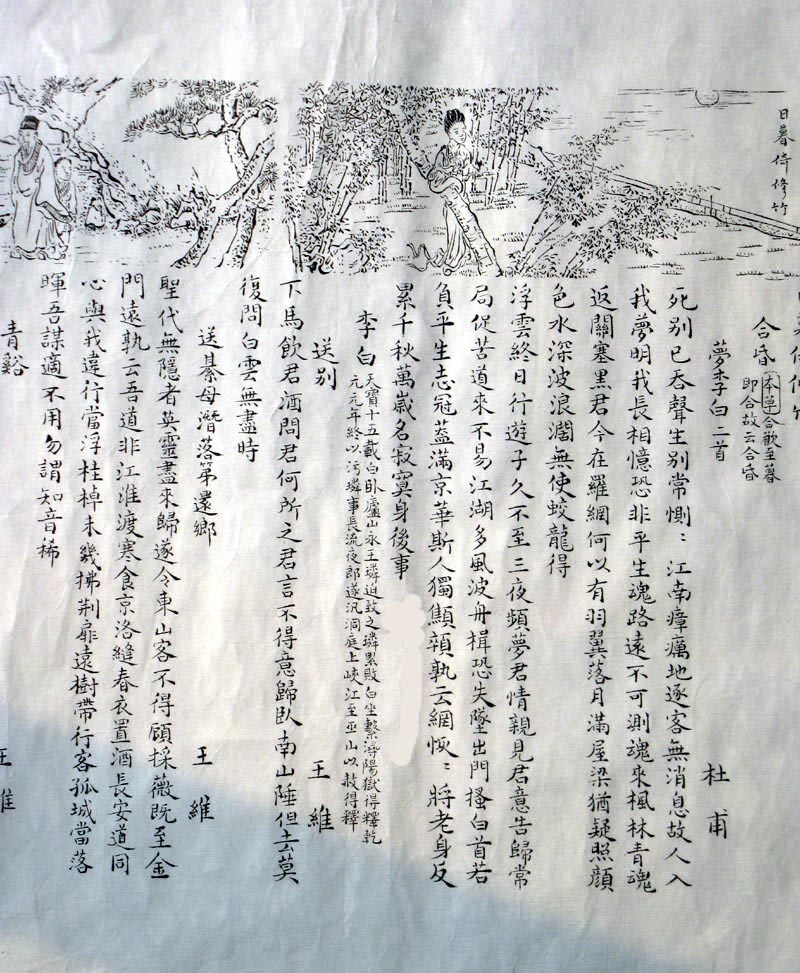 日暮倚修竹
合昏
本草合歡至暮
即合故云合昏
夢李白二首
杜甫
死别已吞聲生别常惻：江南瘴癘地逐客無消息故人入
我夢明我長相憶恐非平生魂路遠不可測魂來楓林青魂
返關塞黑君今在羅網何以有羽翼落月滿屋梁猶疑照顔
色水深波浪濶無使蛟龍得
浮雲終日行遊子久不至三夜頻夢君情親見君意告歸常
局促苦道來不易江湖多風波舟楫恐失墜出門搔白首若
負平生志冠蓋滿京華斯人獨顦顇孰云網恢：將老身反
累千秋萬歲名寂寞身後事
李白
天寶十五載白卧廬山永王璘迫致之璘累敗白坐繫潯陽獄得釋乾
元元年終以污璘事長流夜郎遂汎洞庭上峽江至巫山以赦得釋
送别
王維
下馬飲君酒問君何所之君言不得意歸臥南山陲但去莫
復問白雲無盡時
送綦母潛落第還鄉
王維
聖代無隱者英靈盡來歸遂令東山客不得顧採薇既至金
門遠孰云吾道非江淮渡寒食京洛縫春衣置酒長安道同
心與我違行當浮桂棹未幾拂荆扉遠樹帶行客孤城當落
暉吾謀適不用勿謂知音稀
青谿
王維